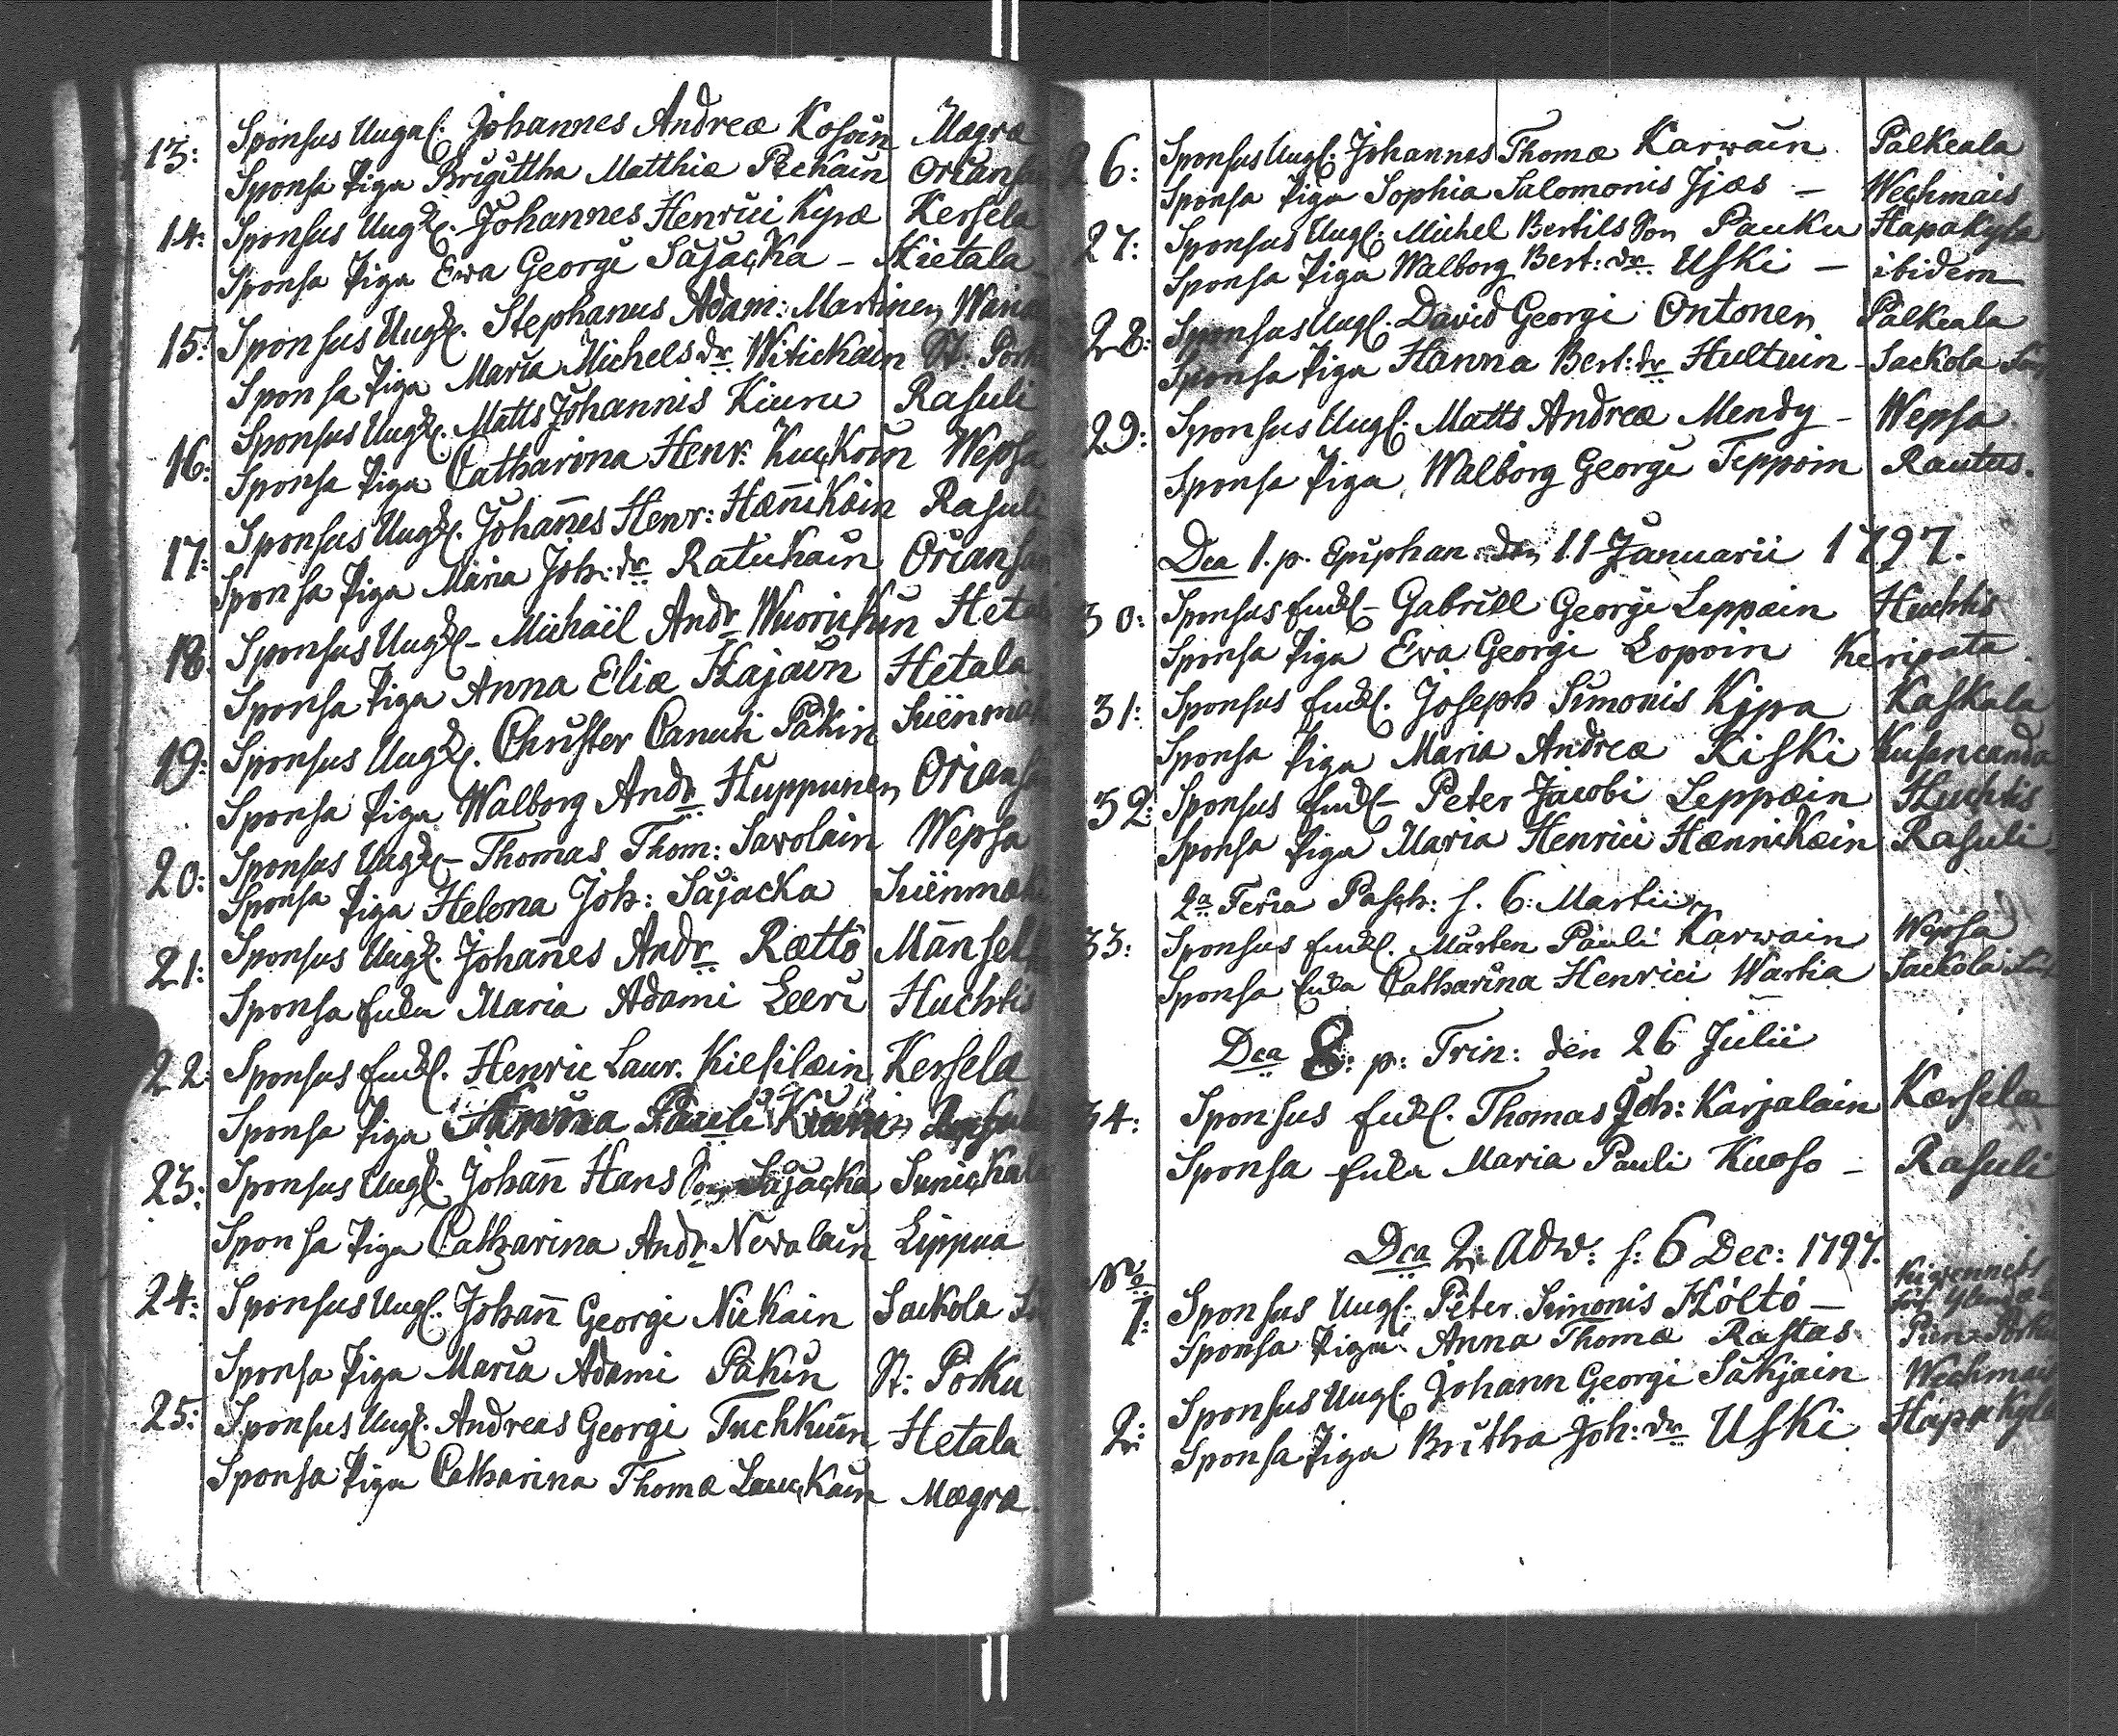 13: Sponsus Ungkl. Johannes Andreæ Kosoin Mägrä
Sponsa Piga Brigittha Matthiæ Peckain Oriansa
14: Sponsus Ungkl. Johannes Henrici Kyræ Kersela
Sponsa Piga Ewa Georgi Säjäcka - Hietala
15: Sponsus Ungkl. Stephanus Adam: Martinen
Sponsa Piga Maria Michels dr Witickain St. Pork
16: Sponsus Ungkl. Matts Johannis Kiuru Rasuli
Sponsa Piga Catharina Henr: Kuckoin Wepsa
17: Sponsus Ungkl. Johañes Henr: Hæñikäin Rasuli
Sponsa Piga Maria Joh: dr Ratukain Oriansar
18: Sponsus Ungkl - Michaël Andr Wuorickin Heta
Sponsa Piga Anna Eliæ Hajain Hetala
19: Sponsus Ungkl. Christer Canuti Päkin Suenmäk
Sponsa Piga Walborg Andr Huppunen Orians
20: Sponsus Ungkl - Thomas Thom: Savolain Wepsa
Sponsa Piga Helena Joh: Säjäcka Suenmæk
21: Sponsus Ungkl. Johañes Andr Rættö Mänselk
Sponsa Enka Maria Adami Leeri Huchtis
22: Sponsus Enkl. Henric Laur. Kiesiläin Kerselæ
Sponsa Piga Pauli
23: Sponsus Ungkl. Johañ Hans Son Säjäcka Sunickala
Sponsa Piga Catharina Andr Nevalain Lippua
24: Sponsus Ungkl. Johañ Georgi Nickain Sackola
Sponsa Piga Maria Adami Päkin St: Pörku
25: Sponsus Ungkl. Andreas Georgi Tuchkuin Hetala
Sponsa Piga Catharina Thomæ Lauckain Mægræ.
26: Sponsus Ungkl. Johannes Thomæ Karwain Palkeala
Sponsa Piga Sophia Salomonis Jjäs - Wechmais
27: Sponsus Ungkl. Michel Bertils Son Pauku Hapakyla
Sponsa Piga Walborg Bert: dr Uski - ibidem
28: Sponsus Ungkl. David Georgi Ontonen Palkeala
Sponsa Piga Hanna Bert: dr Hultuin - Sackola
29: Sponsus Ungkl. Matts Andreæ Mendy - Wepsa
Sponsa Piga Walborg Georgi Teppoin Rautus.
Dca 1. p. Epiphan. den 11 Januarii 1797.
30: Sponsus Enkl - Gabriel Georgi Leppæin Huchtis
Sponsa Piga Eva Georgi Lopoin Keripata
31: Sponsus Enkl. Joseph Simonis Kypa Kaskala
Sponsa Piga Maria Andreæ Kiski Kusencanda
32: Sponsus Enkl - Peter Jacobi Leppæin Huchtis
Sponsa Piga Maria Henrici Hænnikæin Rasuli
2a Feria Pasch: s. 6: Martii
33: Sponsus Enkl. Mårten Pauli Karwain Wepsa
Sponsa Enka Catharina Henrici Wartia Sackola
Dca 8: p: Trin: den 26 Julii
34: Sponsus Enkl. Thomas Joh: Karjalain Kærselæ
Sponsa Enka Maria Pauli Kuoso - Rasuli
Dca 2: Adw: s: 6 Dec: 1797.
No
1: Sponsus Ungkl. Peter Simonis Höltö -
Sponsa Piga Anna Thomæ Rastas Pien Pörku
2: Sponsus Ungkl. Johann Georgi Säkjäin Wechmais
Sponsa Piga Britha Joh: dr Uski Hapakylä